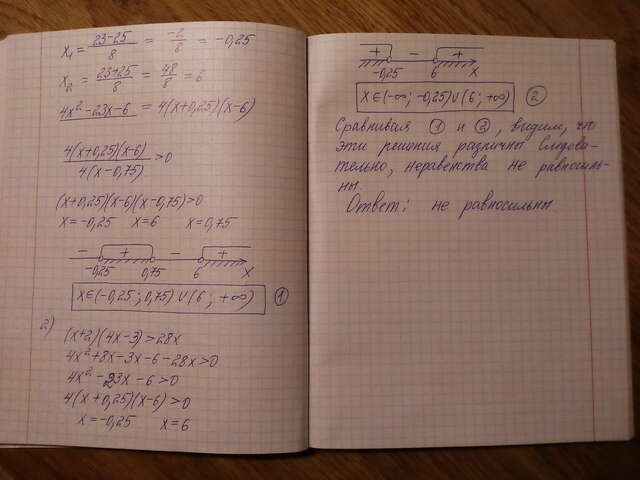 x₁ = (23-25)/8 = -2/8 = -0,25
x₂ = (23+25)/8 = 48/8 = 6
4x² - 23x - 6 = 4(x+0,25)(x-6)
4(x+0,25)(x-6) / 4(x-0,75) > 0
(x+0,25)(x-6)(x-0,75) > 0
x = -0,25 x = 6 x = 0,75
- + - +
-0,25 0,75 6 x
x ∈ (-0,25; 0,75) ∪ (6; +∞) ①
2)
(x+2)(4x-3) > 28x
4x² + 8x - 3x - 6 - 28x > 0
4x² - 23x - 6 > 0
4(x+0,25)(x-6) > 0
x = -0,25 x = 6
+ - +
-0,25 6 x
x ∈ (-∞; -0,25) ∪ (6; +∞) ②
Сравнивая ① и ②, видим, что
эти решения различны Следова-
тельно, неравенства не равносиль-
ны.
Ответ: не равносильны